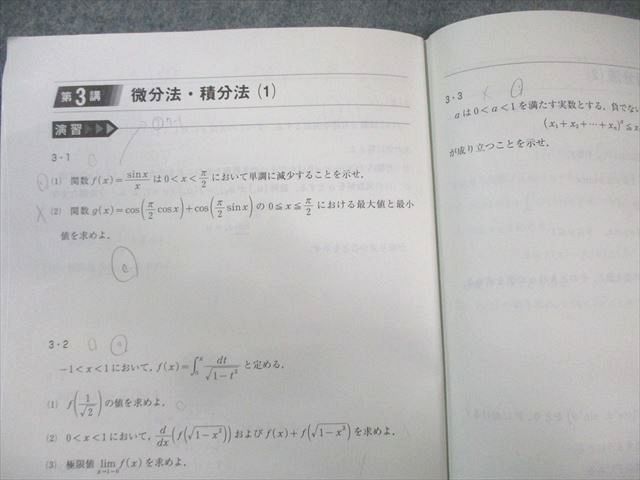 第3講 微分法・積分法 (1)
演習
3・1
(1) 関数 f(x)=sinx/x は 0<x<π/2 において単調に減少することを示せ.
(2) 関数 g(x)=cos(π/2 cosx)+cos(π/2 sinx) の 0≦x≦π/2 における最大値と最小
値を求めよ.
3・2
-1<x<1において, f(x)=∫₀ˣ dt/√(1-t²) と定める.
(1) f(1/√2) の値を求めよ.
(2) 0<x<1において, d/dx (f(√(1-x²))) および f(x)+f(√(1-x²)) を求めよ.
(3) 極限値 lim x→1-0 f(x) を求めよ.
3・3
a は 0<a<1 を満たす実数とする. 負でない
(x₁+x₂+…+xₙ)ᵃ≦x
が成り立つことを示せ.